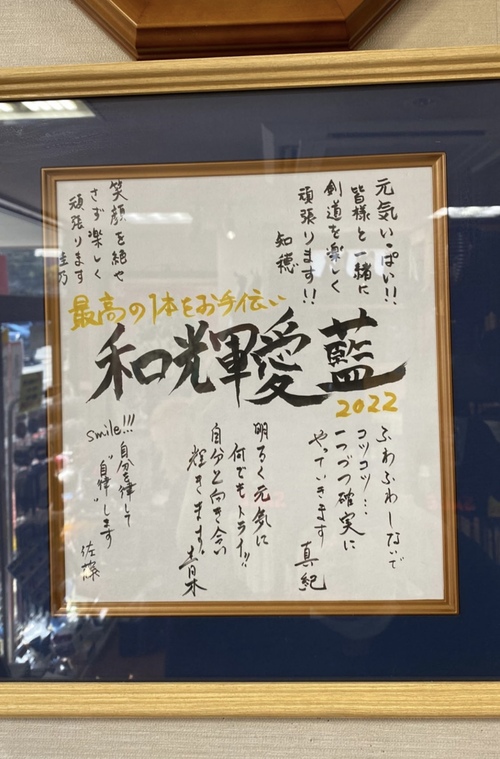 元気いっぱい!!
皆様と一緒に
剣道を楽しく
頑張ります!!
知穂
笑顔を絶や
さず楽しく
頑張ります
圭乃
最高の1本をお手伝い
和輝愛藍
2022
ふわふわしないで
コツコツ…
一つづつ確実に
やっていきます
真紀
明るく元気に
何でもトライ!!
自分と向き合い
輝きます!
青木
smile!!!
自分を律して
"自律"します
佐藤